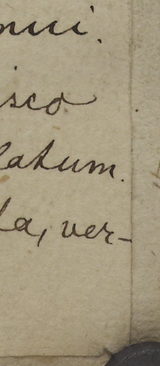 nui.
isco
latum.
la, ver-